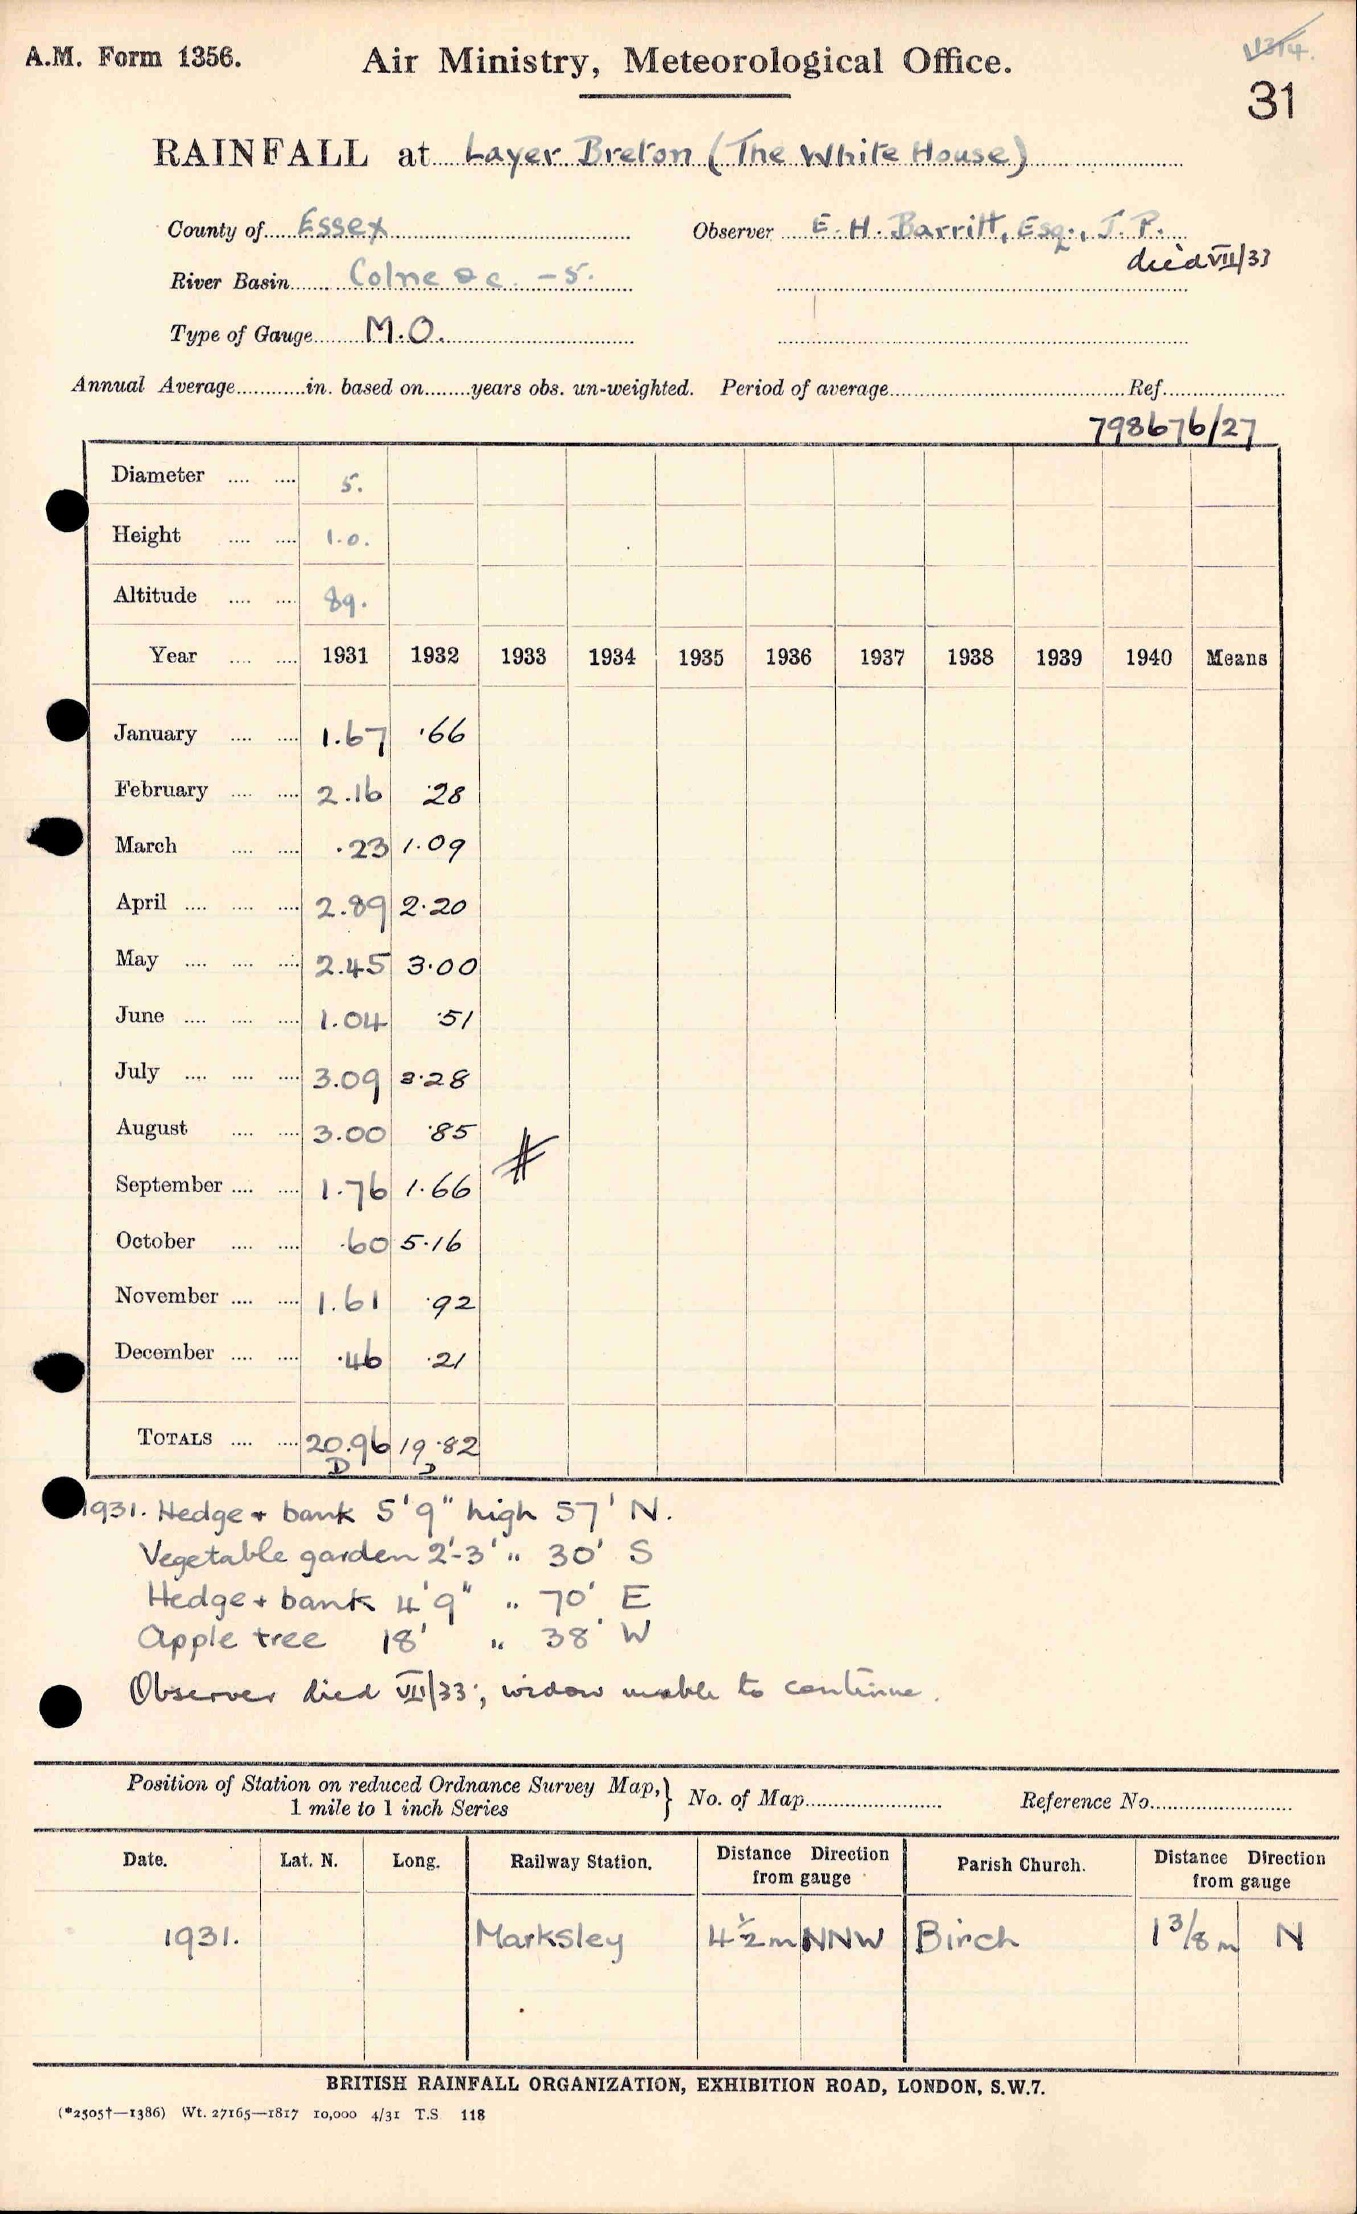 A.M. Form 1356. Air Ministry, Meteorological Office. 1314.
31
RAINFALL at Layer Breton (The White House)
County of Essex Observer E. H. Barritt, Esq., J. P.
died VII/33
River Basin Colne &c -5.
Type of Gauge M.O.
Annual Average in. based on years obs. un-weighted. Period of average Ref.
798676/27
Diameter 5.
Height 1.0.
Altitude 89.
Year 1931 1932 1933 1934 1935 1936 1937 1938 1939 1940 Means
January 1.67 .66
February 2.16 .28
March .23 1.09
April 2.89 2.20
May 2.45 3.00
June 1.04 .51
July 3.09 3.28
August 3.00 .85
September 1.76 1.66
October .60 5.16
November 1.61 .92
December .46 .21
TOTALS 20.96 19.82
D D
1931. Hedge + bank 5'9" high 57' N.
Vegetable garden 2'-3' " 30' S
Hedge + bank 4'9" " 70' E
Apple tree 18' " 38' W
Observer died VII/33; widow unable to continue.
Position of Station on reduced Ordnance Survey Map, } No. of Map Reference No.
1 mile to 1 inch Series
Date. Lat. N. Long. Railway Station. Distance Direction from gauge Parish Church. Distance Direction from gauge
1931. Marksley 4½m NNW Birch 1 3/8 m N
BRITISH RAINFALL ORGANIZATION, EXHIBITION ROAD, LONDON, S.W.7.
(*2505†—1386) Wt. 27165—1817 10,000 4/31 T.S. 118